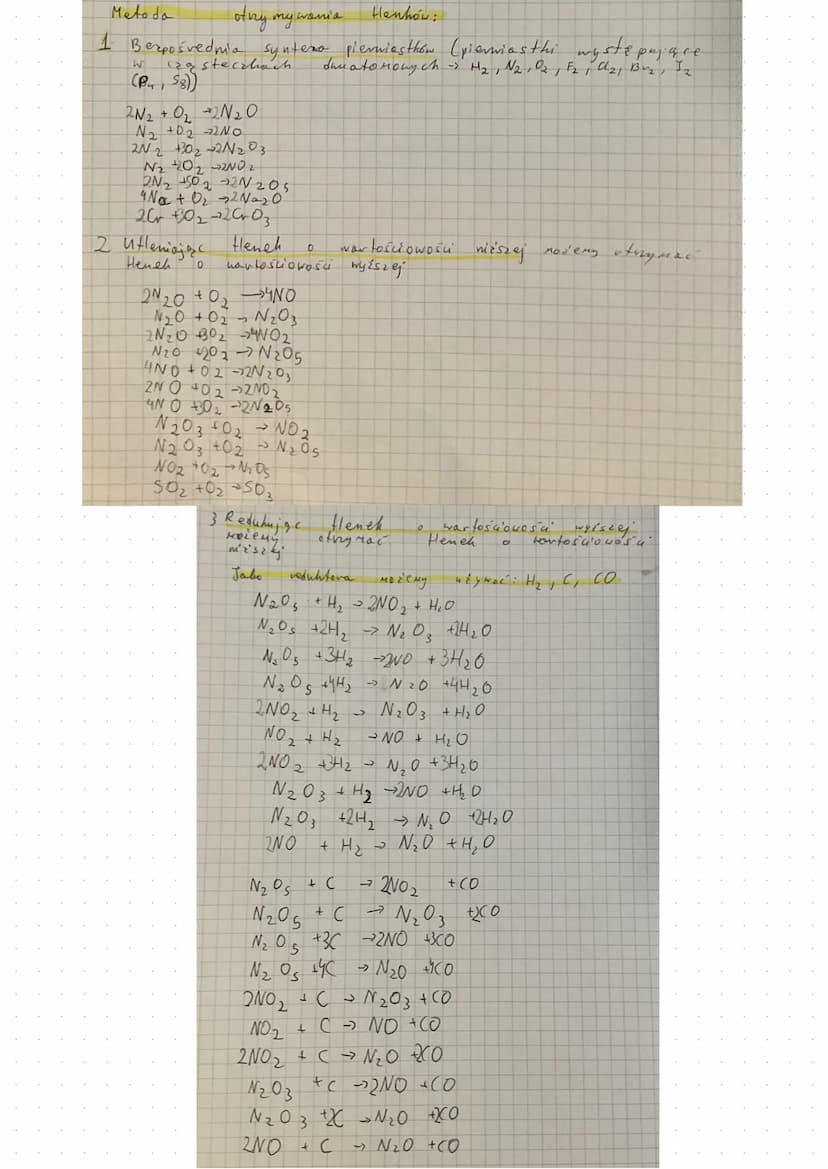 Metoda otrzymywania tlenków:
1 Bezpośrednia synteza pierwiastków (pierwiastki występujące
w cząsteczkach dwuatomowych → H₂, N₂, O₂, F₂, Cl₂, Br₂, I₂
(P₄, S₈))
2N₂ + O₂ → 2N₂O
N₂ + O₂ → 2NO
2N₂ + 3O₂ → 2N₂O₃
N₂ + 2O₂ → 2NO₂
2N₂ + 5O₂ → 2N₂O₅
4Na + O₂ → 2Na₂O
2Cr + 3O₂ → 2CrO₃
2 Utleniając tlenek o wartościowości niższej możemy otrzymać
tlenek o wartościowości wyższej
2N₂O + O₂ → 4NO
N₂O + O₂ → N₂O₃
2N₂O + 3O₂ → 4NO₂
N₂O + 2O₂ → N₂O₅
4NO + O₂ → 2N₂O₃
2NO + O₂ → 2NO₂
4NO + 3O₂ → 2N₂O₅
N₂O₃ + O₂ → NO₂
N₂O₃ + O₂ → N₂O₅
NO₂ + O₂ → N₂O₅
SO₂ + O₂ → SO₃
3 Redukując tlenek o wartościowości wyższej
możemy otrzymać tlenek o wartościowości
niższej
Jako reduktora możemy używać: H₂, C, CO
N₂O₅ + H₂ → 2NO₂ + H₂O
N₂O₅ + 2H₂ → N₂O₃ + 2H₂O
N₂O₅ + 3H₂ → 2NO + 3H₂O
N₂O₅ + 4H₂ → N₂O + 4H₂O
2NO₂ + H₂ → N₂O₃ + H₂O
NO₂ + H₂ → NO + H₂O
2NO₂ + 3H₂ → N₂O + 3H₂O
N₂O₃ + H₂ → 2NO + H₂O
N₂O₃ + 2H₂ → N₂O + 2H₂O
2NO + H₂ → N₂O + H₂O
N₂O₅ + C → 2NO₂ + CO
N₂O₅ + C → N₂O₃ + 2CO
N₂O₅ + 3C → 2NO + 3CO
N₂O₅ + 4C → N₂O + 4CO
2NO₂ + C → N₂O₃ + CO
NO₂ + C → NO + CO
2NO₂ + C → N₂O + CO
N₂O₃ + C → 2NO + CO
N₂O₃ + 2C → N₂O + 2CO
2NO + C → N₂O + CO